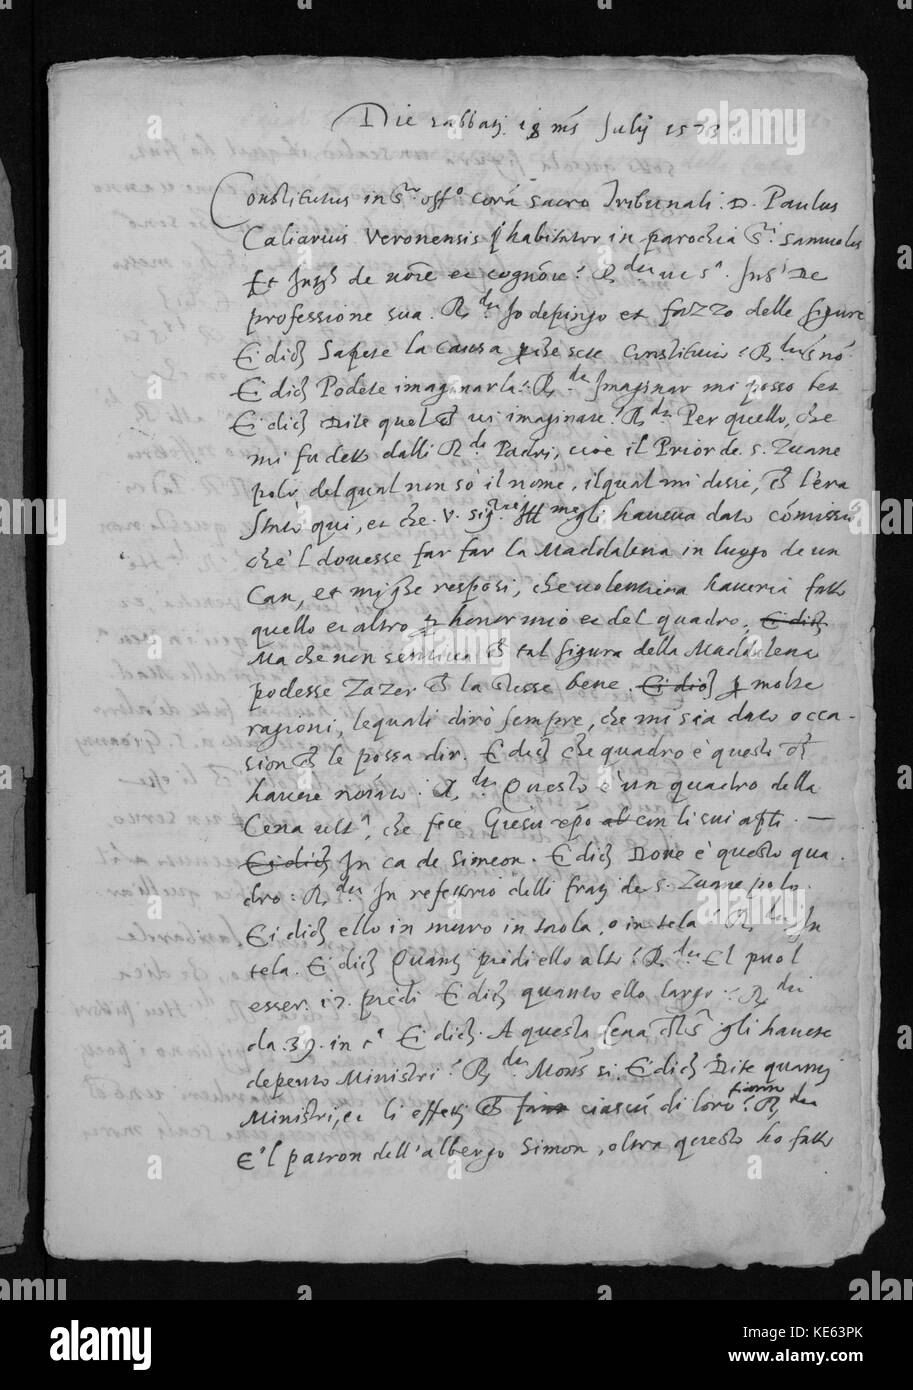 Die sabbati 18 ms Julij 1573.
Constitutus in Sto offo corā sacro Tribunali D. Paulus
Caliarius Veronensis habitator in parochia Sti Samuelis
Et Intgs de noīe et cognoīe: Rdit ut sa. Intgs De
professione sua. Rdit Io depingo et fazzo delle figure
Ei dictū Sapete la causa perche sete constituito: Rdit Sr nō.
Ei dictū Podete imaginarla: Rdit Imaginar mi posso ben
Ei dictū Dite quel che vi imaginate: Rdit Per quello, che
mi fu detto dalli Rdi Padri, cioè il Prior de S. Zuane
polo del qual non sò il nome, il qual mi disse, che l'era
stato qui, et che V. Sigrie Illme gli haveva dato cōmissiō
ch'el dovesse far far la Maddalena in luogo de un
Can, et mi ghe resposi, che volentiera haveria fatto
quello et altro per honor mio et del quadro, Ei dictū
Ma che non sentiva che tal figura della Maddalena
podesse zazer che la stesse bene. Ei dictū per molte
ragioni, le quali dirò sempre, che mi sia dato occa-
sion che le possa dir. Ei dictū che quadro è questo che
havete nōiato: Rdit Questo è un quadro della
Cena ultīa, che fece Giesu Xpō al con li sui apti.—
Ei dictū In ca de Simeon. Ei dictū Dove è questo qua-
dro: Rdit In refettorio delli frati de S. Zuane polo.
Ei dictū ello in muro in taola, o in tela: Rdit In
tela. Ei dictū Quanti piedi ello alto: Rdit El puol
esser 17. piedi Ei dictū quanto ello largo: Rdit
da 39. in ca Ei dictū. A questa Cena del Sr gli havete
depento Ministri: Rdit Mons si. Ei dictū Dite quanti
Ministri, et li effetti che fann ciascū di loro: Rdit
E'l patron dell'albergo Simon, oltra questo ho fatto
alamy
Image ID: KE63PK
www.alamy.com